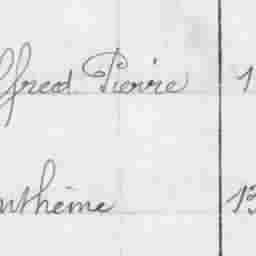 lfred Pierre 1
nthème 13